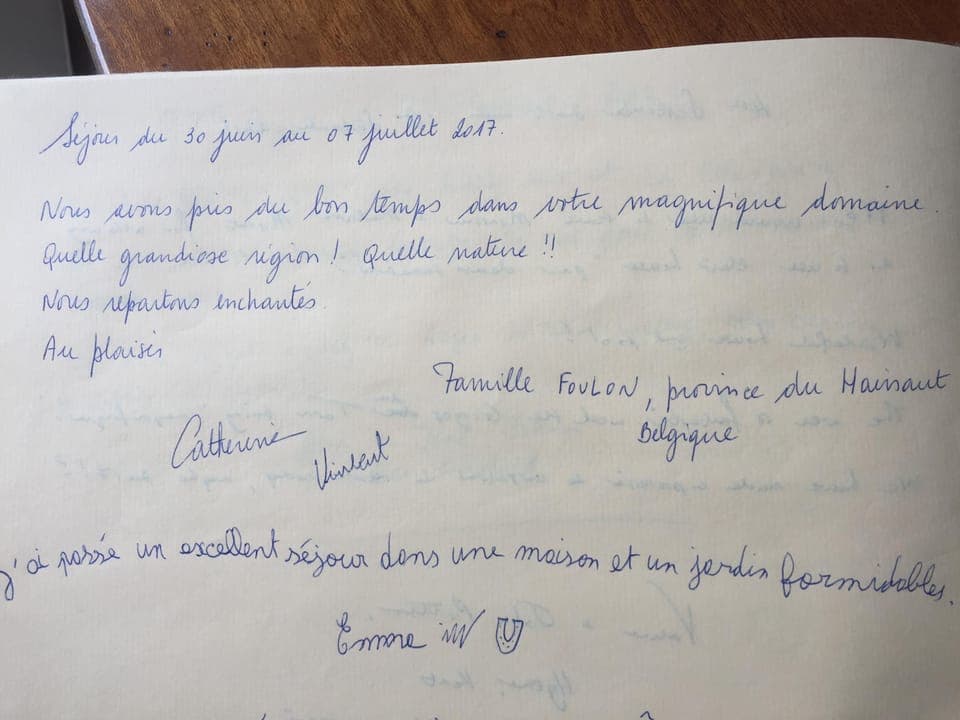 Séjour du 30 juin au 07 juillet 2017.
Nous avons pris du bon temps dans votre magnifique domaine.
Quelle grandiose région ! Quelle nature !!
Nous repartons enchantés
Au plaisir
Famille FOULON, province du Hainaut
Belgique
Catherine
Vincent
J'ai passé un excellent séjour dans une maison et un jardin formidables.
Emma